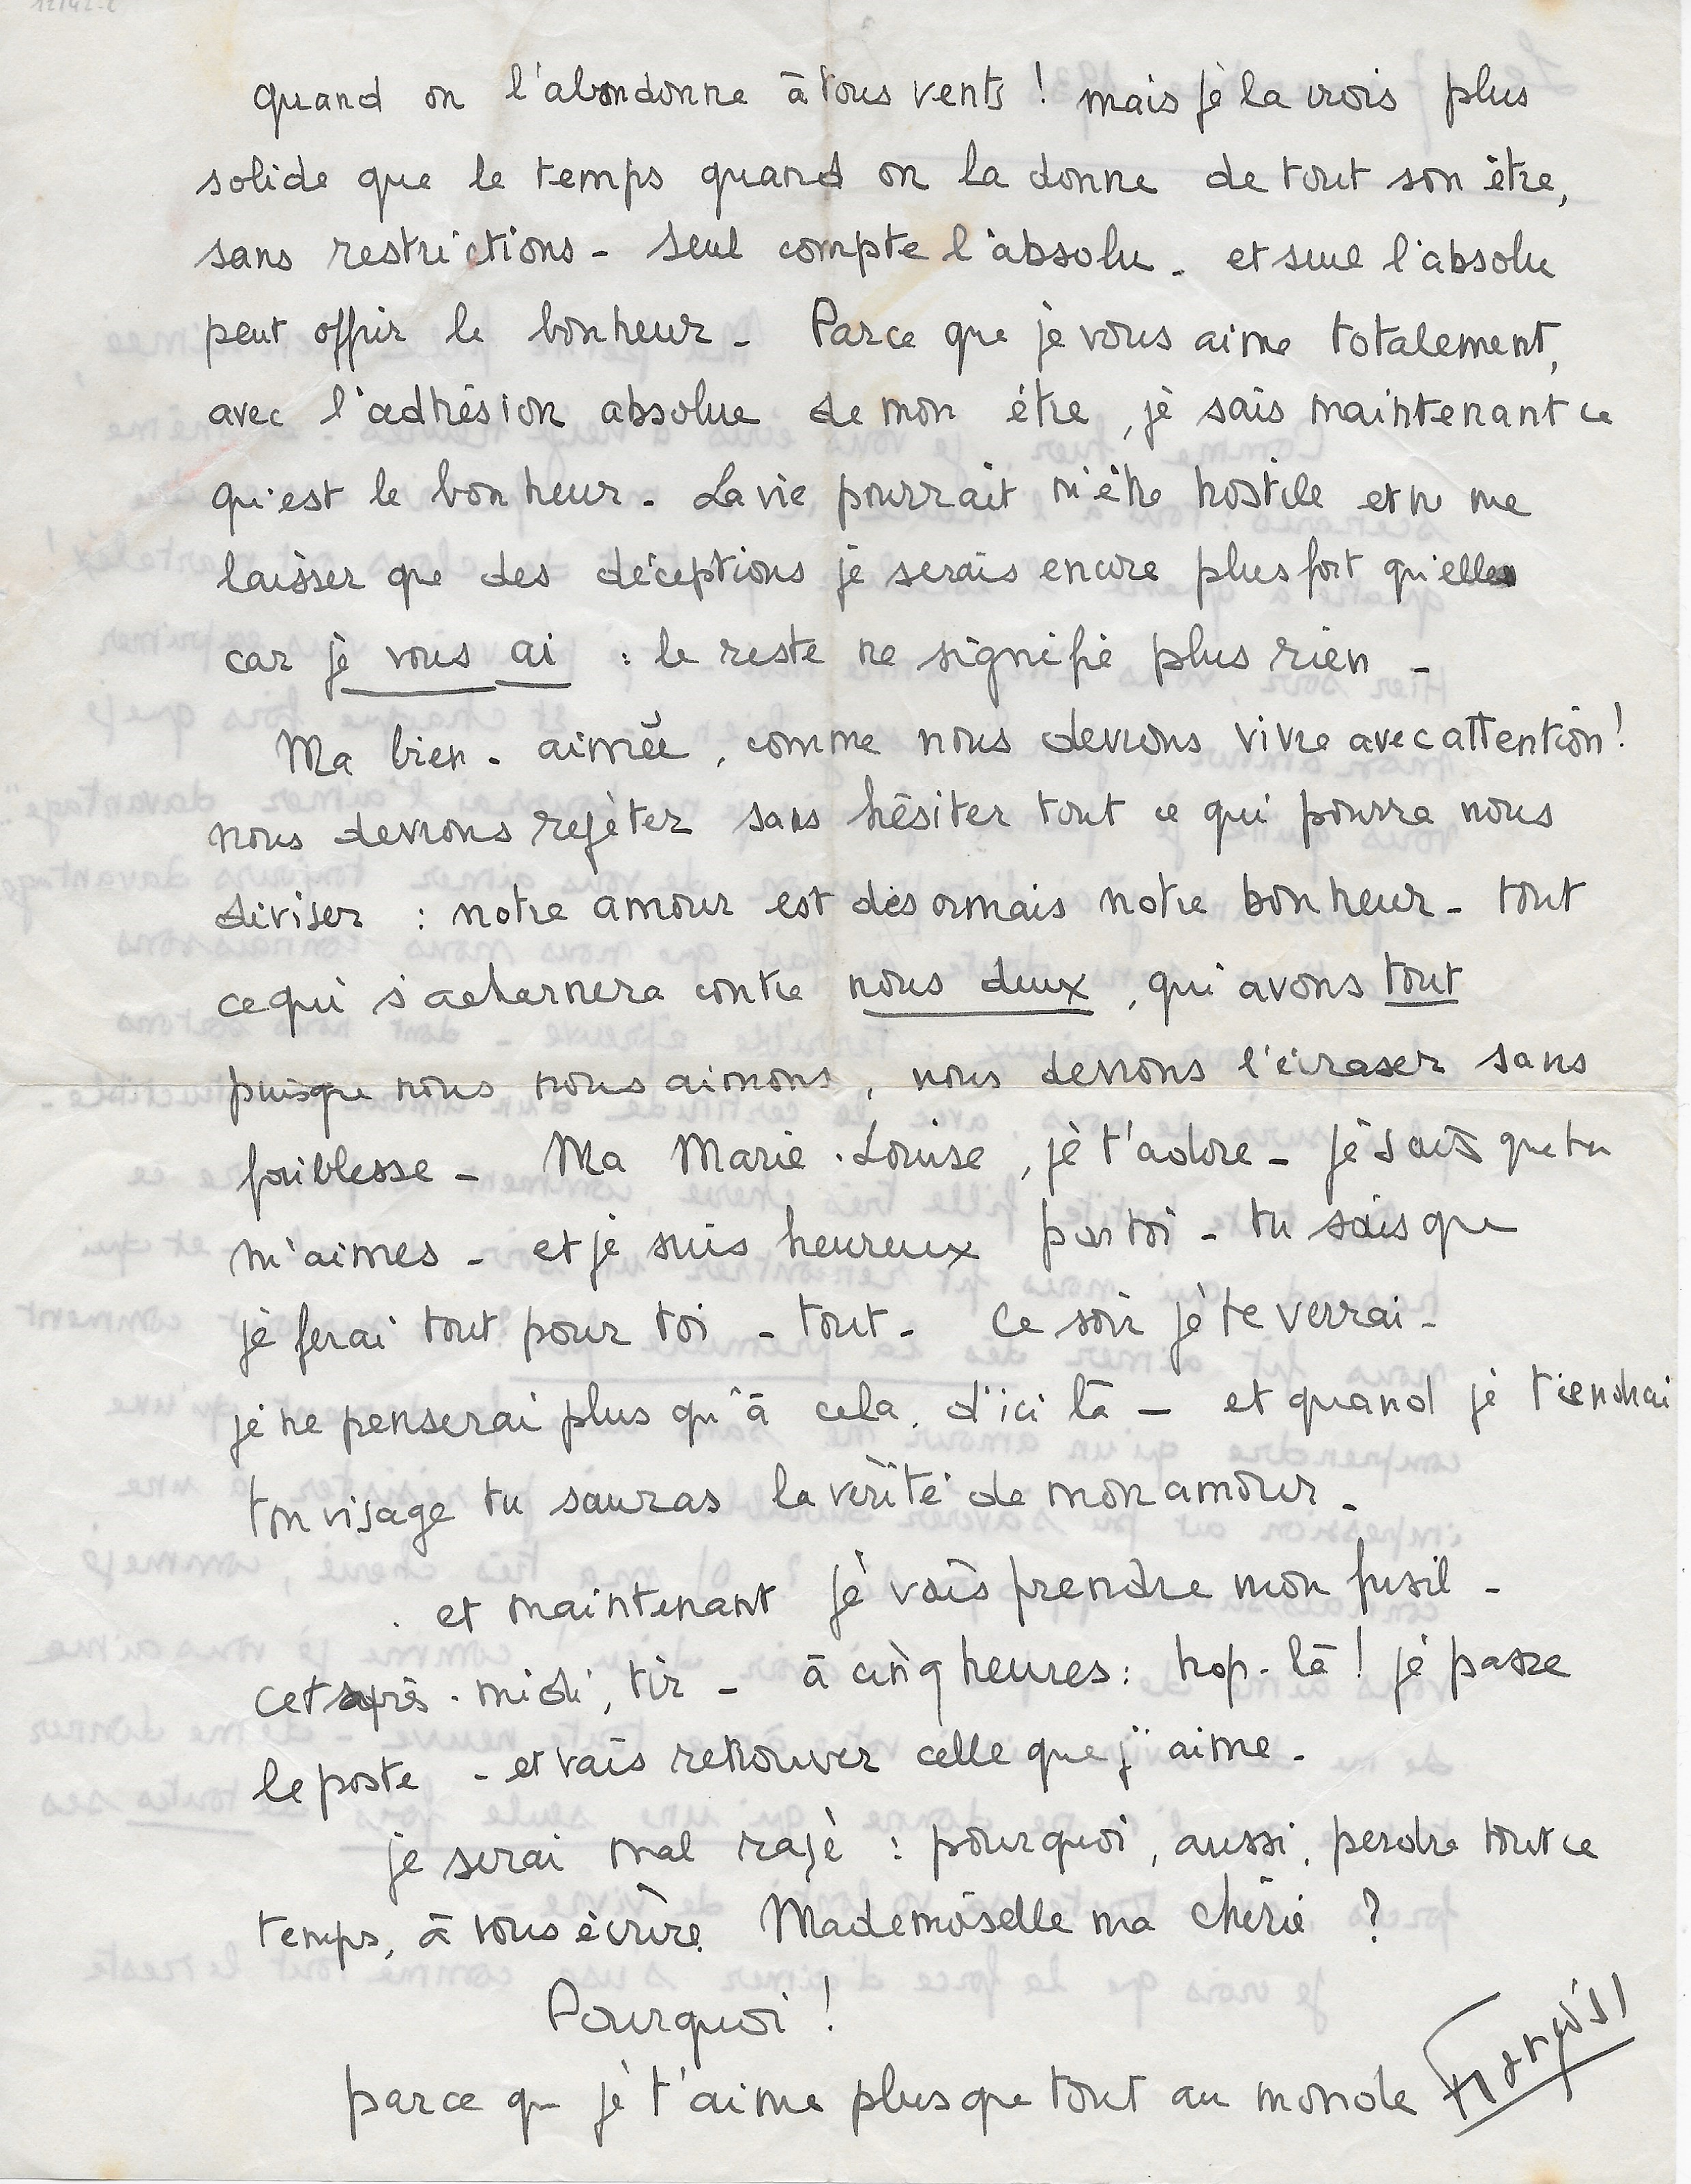 quand on l'abandonne à tous vents ! mais je la crois plus
solide que le temps quand on la donne de tout son être,
sans restrictions - seul compte l'absolu - et seul l'absolu
peut offrir le bonheur - Parce que je vous aime totalement,
avec l'adhésion absolue de mon être, je sais maintenant ce
qu'est le bonheur - La vie pourrait m'être hostile et ne me
laisser que des déceptions je serais encore plus fort qu'elles
car je vous ai : le reste ne signifie plus rien -
Ma bien-aimée, comme nous devrons vivre avec attention !
nous devrons rejeter sans hésiter tout ce qui pourra nous
diviser : notre amour est désormais notre bonheur - tout
ce qui s'acharnera contre nous deux, qui avons tout
puisque nous nous aimons, nous devrons l'écraser sans
faiblesse - Ma Marie-Louise, je t'adore - je sais que tu
m'aimes - et je suis heureux par toi - tu sais que
je ferai tout pour toi - tout - Ce soir je te verrai -
je ne penserai plus qu'à cela, d'ici là - et quand je tiendrai
ton visage tu sauras la vérité de mon amour.
et maintenant je vais prendre mon fusil -
cet après-midi, tir - à cinq heures : hop-là ! je passe
le poste - et vais retrouver celle que j'aime -
je serai mal rasé : pourquoi, aussi, perdre tout ce
temps, à vous écrire Mademoiselle ma chérie ?
Pourquoi !
parce que je t'aime plus que tout au monde François